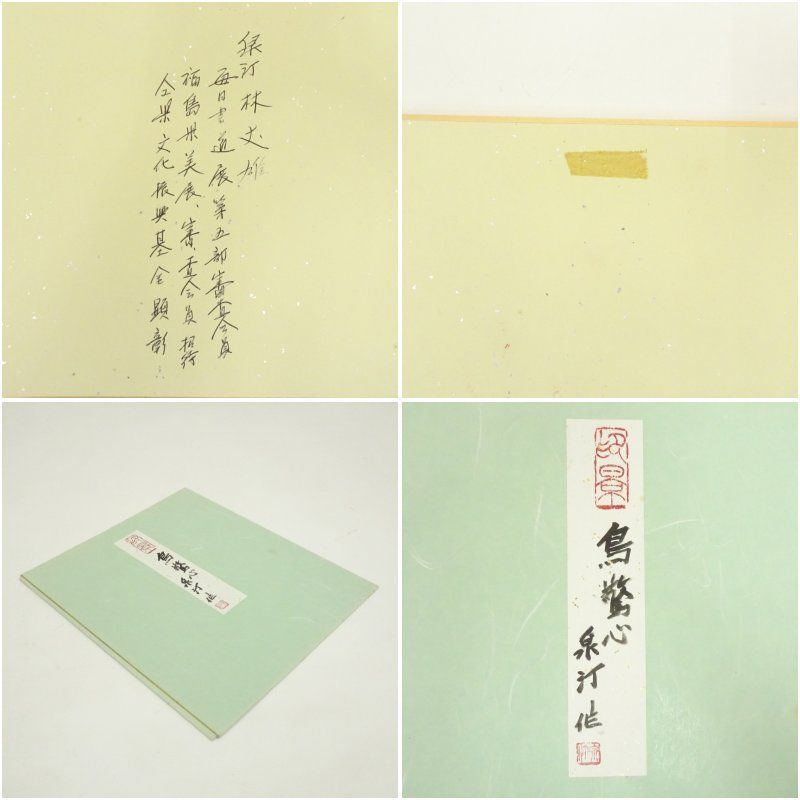 泉汀 林丈雄
毎日書道展第五部審査会員
福島県美展、審査会員 招待
仝県文化振興基金顕彰
鳥驚心
泉汀作
鳥驚心
泉汀作